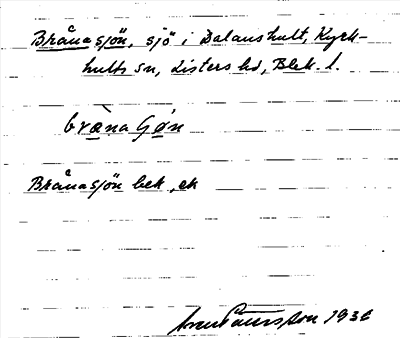 Brånasjön, sjö i Dalanshult, Kyrk-
hults sn, Listers hd, Blek. l.
bræna Gǿn
Brånasjön bek, ek
1930